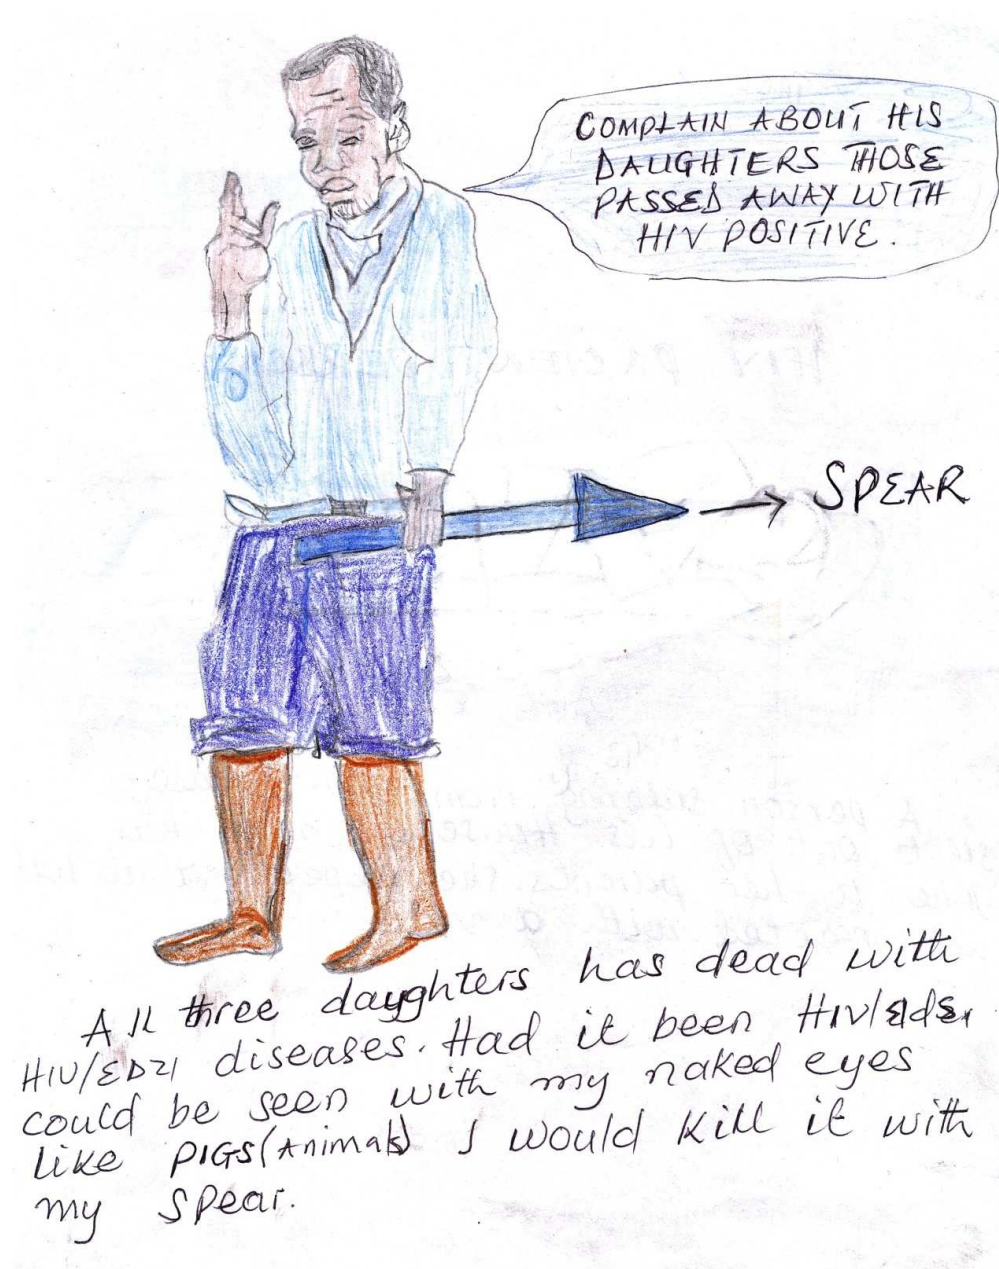 COMPLAIN ABOUT HIS
DAUGHTERS THOSE
PASSED AWAY WITH
HIV POSITIVE.
SPEAR
All three dayghters has dead with
HIV/EDZI diseases. Had it been HIV/Eids,
could be seen with my naked eyes
like PIGS(Animals) I would kill it with
my spear.